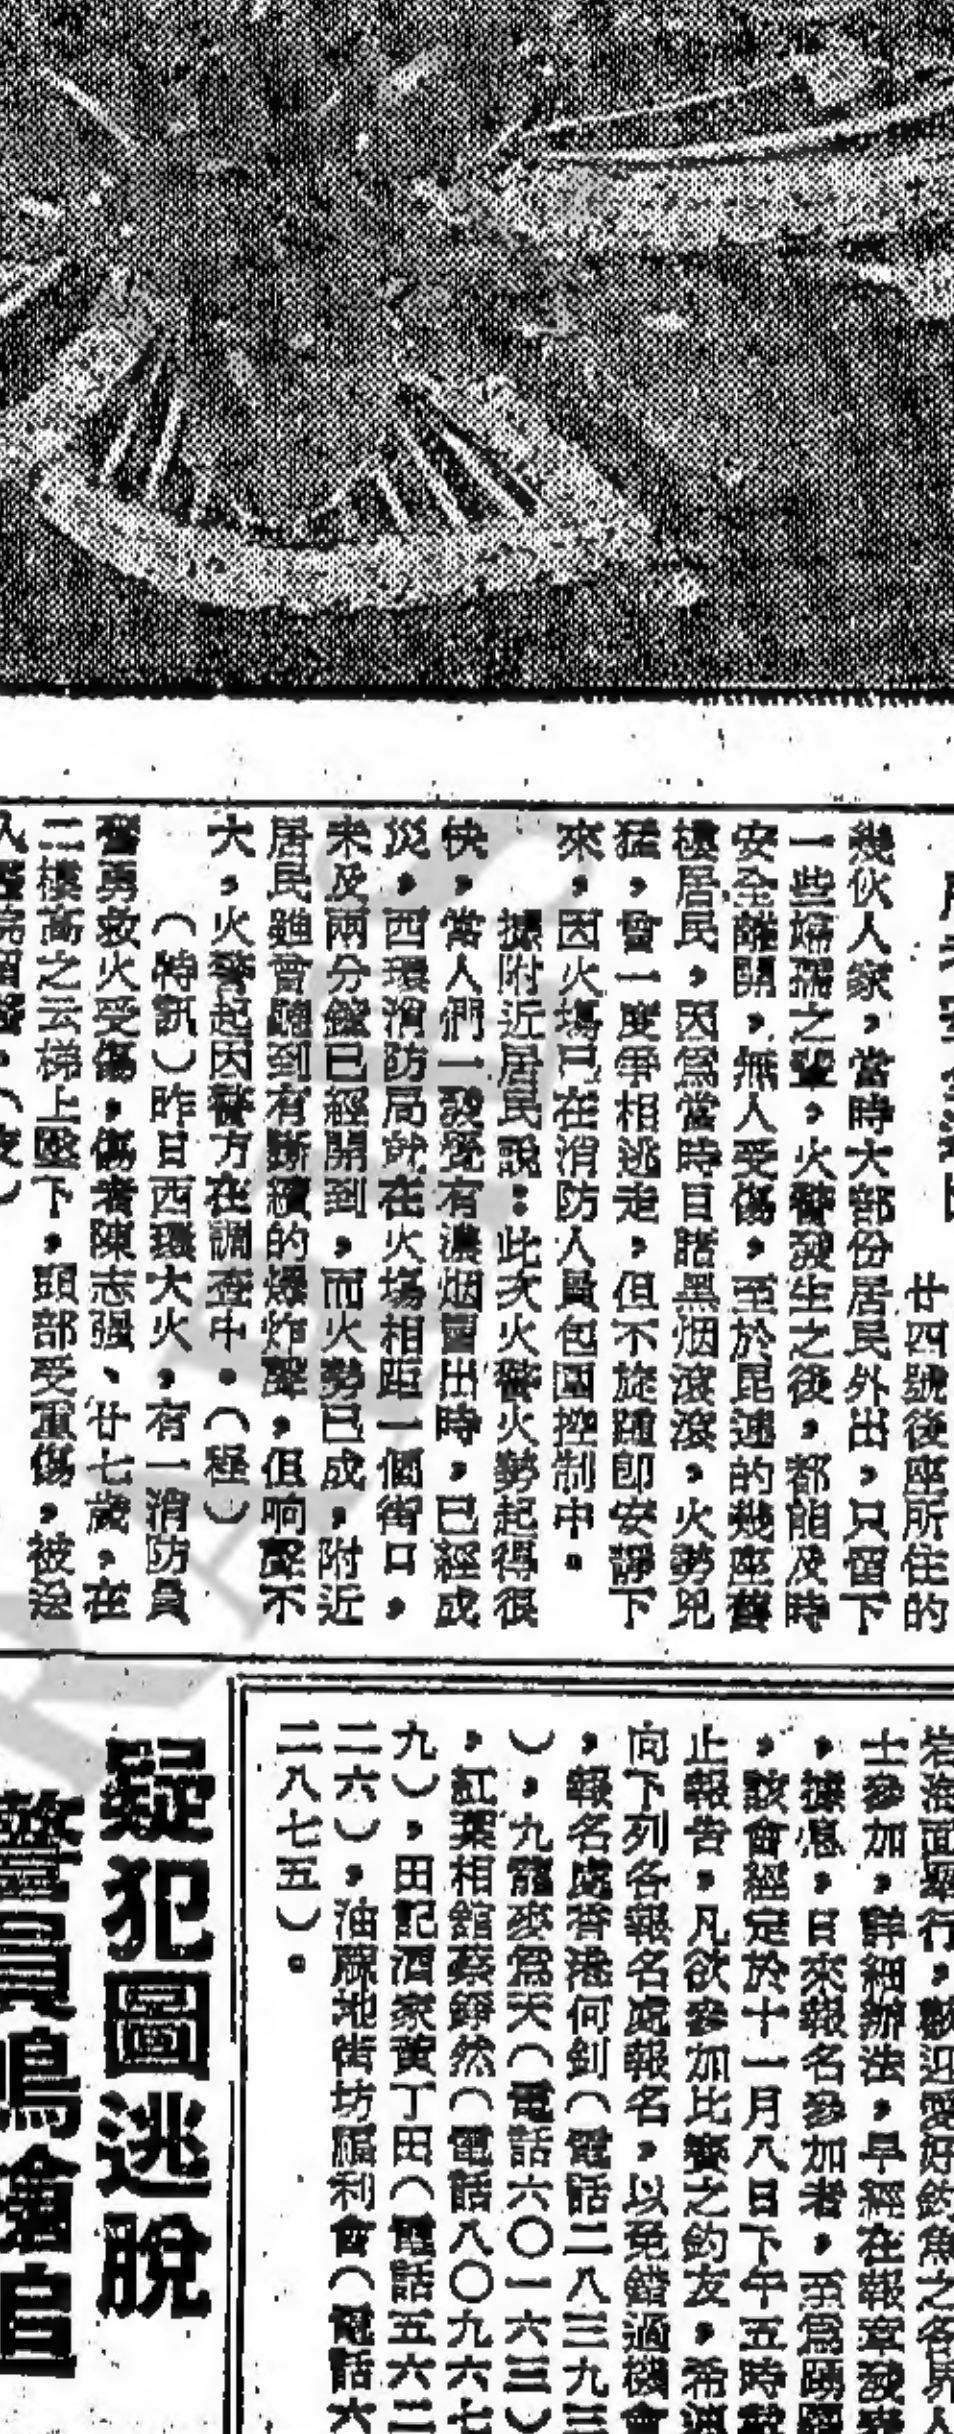 廿四號後座所住的
幾伙人家，當時大部份居民外出，只留下
一些婦孺之輩，火警發生之後，都能及時
安全離開，無人受傷，至於毘連的幾座舊
樓居民，因爲當時目睹黑烟滾滾，火勢兇
猛，曾一度爭相逃走，但不旋踵即安靜下
來，因火塲已在消防人員包圍控制中。
據附近居民說：此次火警火勢起得很
快，當人們一發覺有濃烟冒出時，已經成
災，西環消防局就在火塲相距一個街口，
未及兩分鐘已經開到，而火勢已成，附近
居民雖曾聽到有斷續的爆炸聲，但响聲不
大，火警起因警方在調查中。（程）
（特訊）昨日西環大火，有一消防員
奮勇救火受傷，傷者陳志强、廿七歲，在
三樓高之云梯上墜下，頭部受重傷，被送
入醫院留醫。
岩海面舉行，歡迎愛好釣魚之各界人
士參加，詳細辦法，早經在報章發表
，據息，日來報名參加者，至爲踴躍
，該會經定於十一月八日下午五時截
止報告，凡欲參加比賽之釣友，希迅
向下列各報名處報名，以免錯過機會
，報名處香港何釗（電話二八三九三
），九龍麥爲天（電話六〇一六三）
，紅葉相館蔡錚然（電話八〇九六七
九），田記酒家黃丁田（電話五六二
二六），油蔴地街坊福利會（電話六
二八七五）。
疑犯圖逃脫
警員鳴槍追